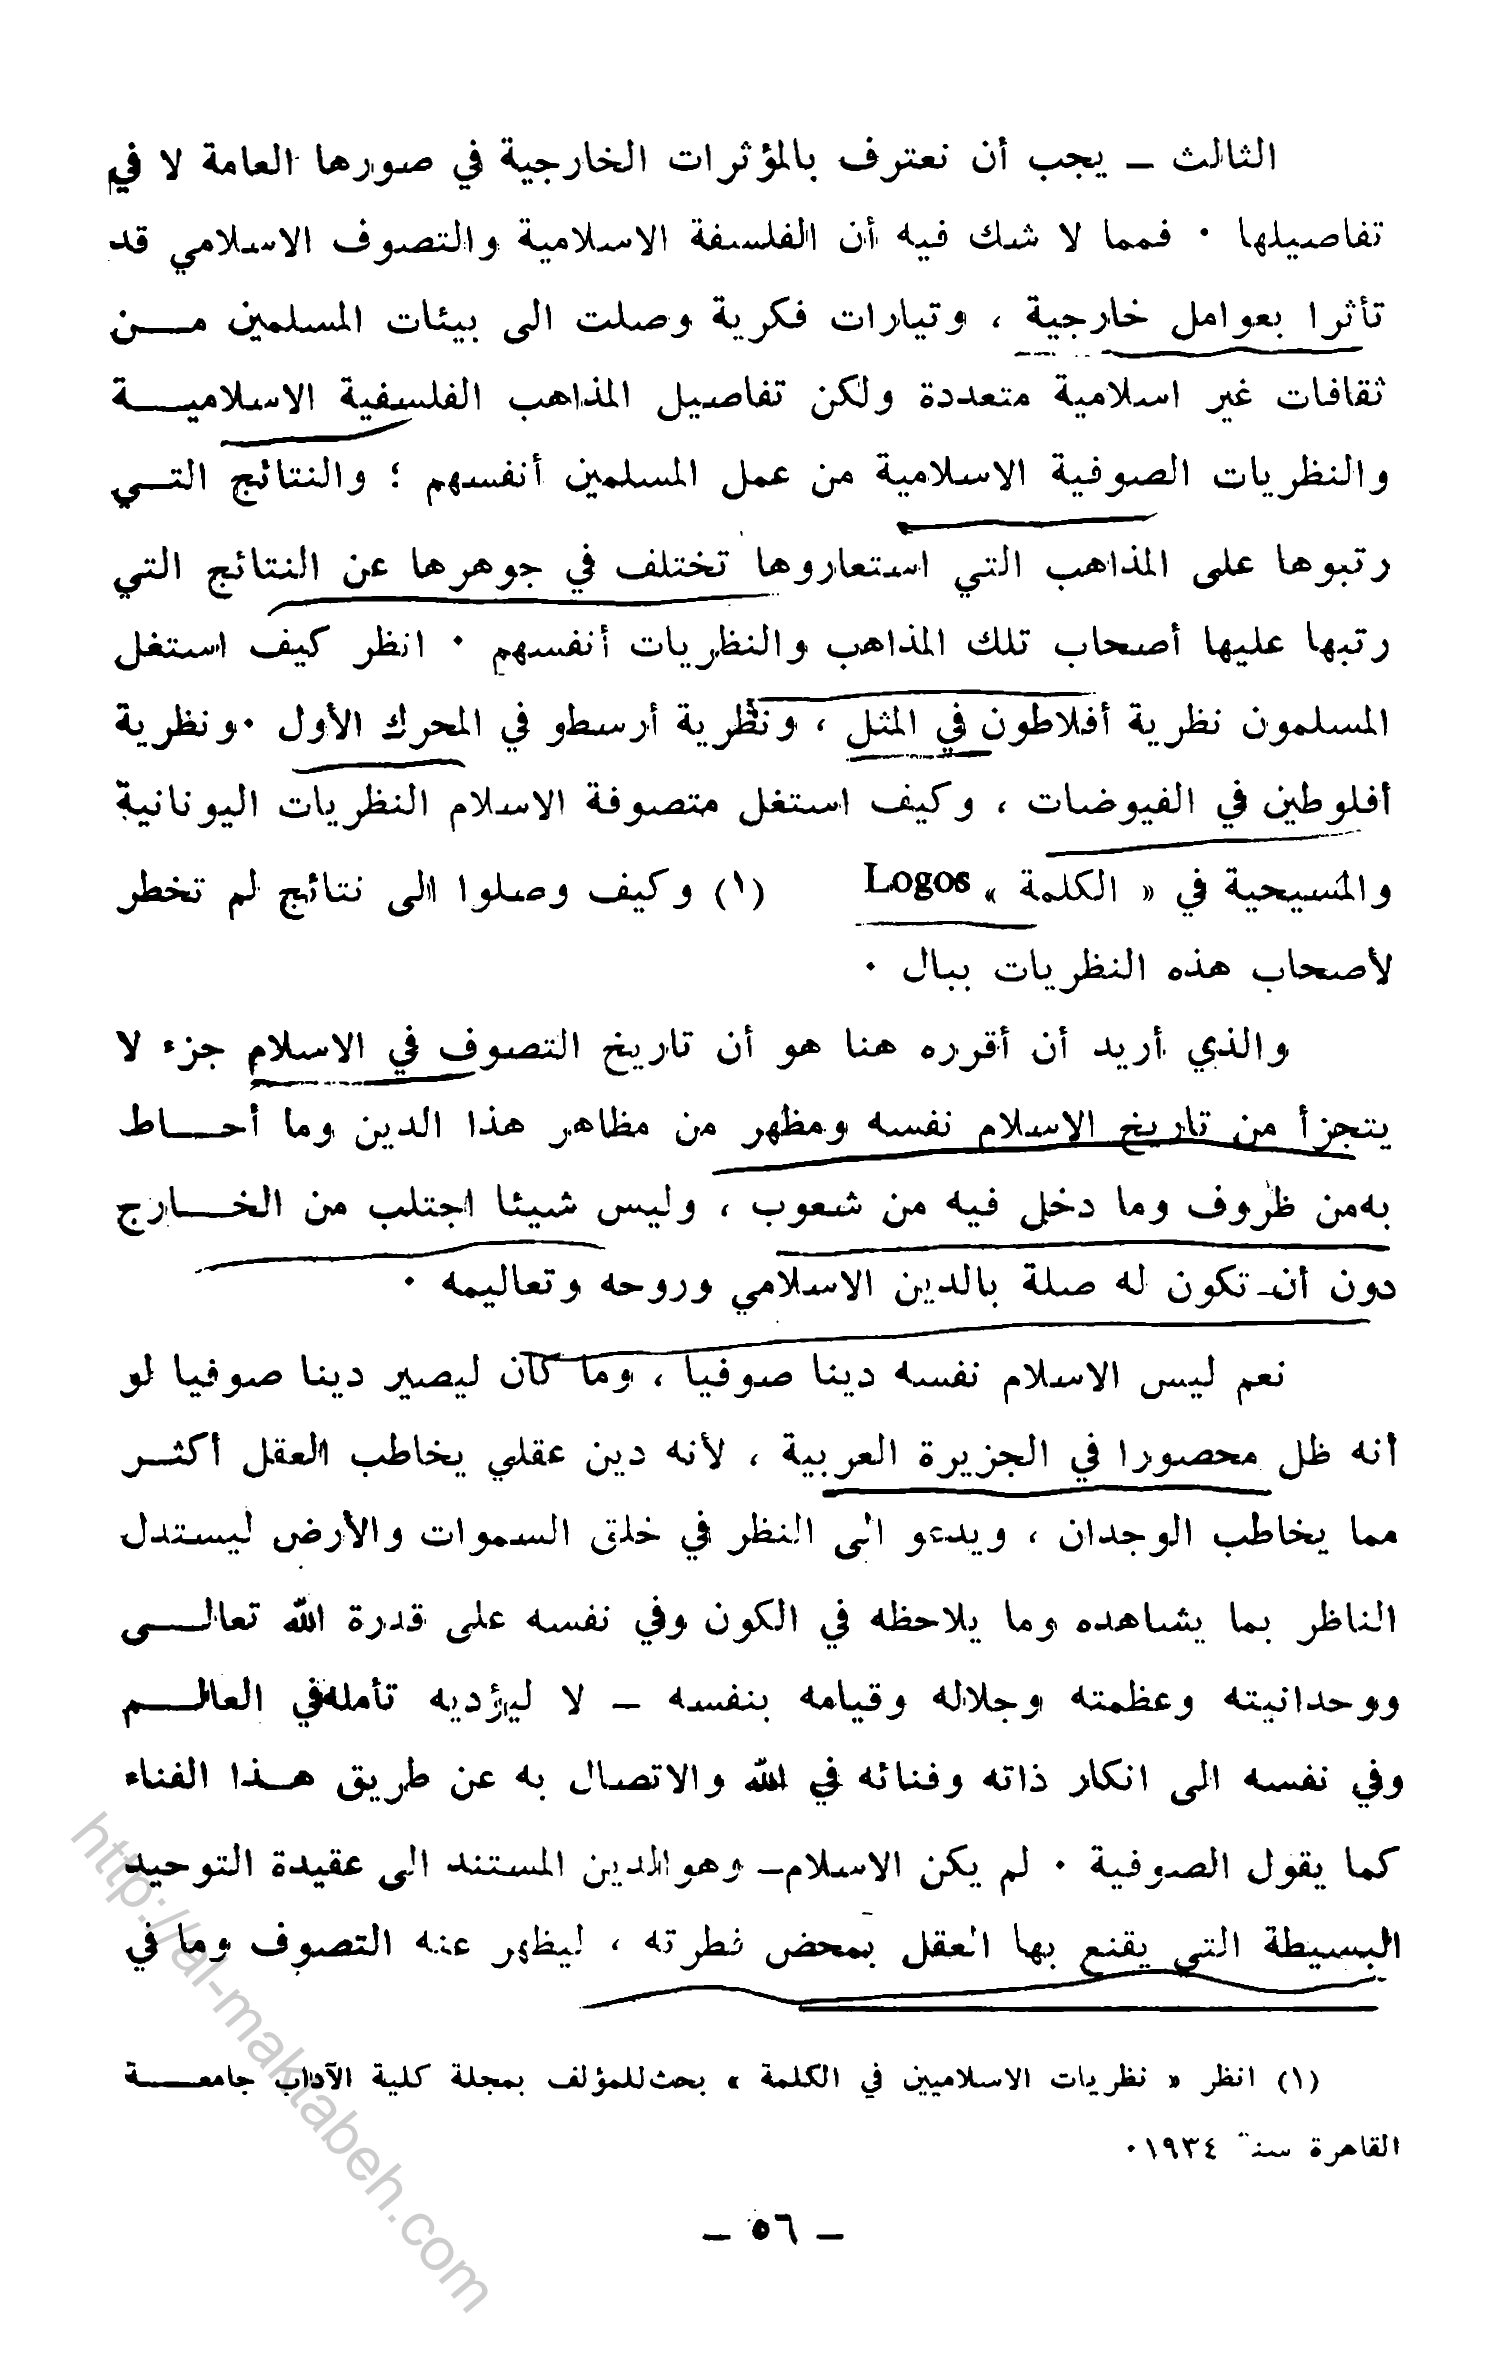 الثالث ــ يجب أن نعترف بالمؤثرات الخارجية في صورها العامة لا في
تفاصيلها ٠ فمما لا شك فيه أن الفلسفة الاسلامية والتصوف الاسلامي قد
تأثرا بعوامل خارجية ، وتيارات فكرية وصلت الى بيئات المسلمين مــن
ثقافات غير اسلامية متعددة ولكن تفاصيل المذاهب الفلسفية الاسلاميــة
والنظريات الصوفية الاسلامية من عمل المسلمين أنفسهم ؛ والنتائج التــي
رتبوها على المذاهب التي استعاروها تختلف في جوهرها عن النتائج التي
رتبها عليها أصحاب تلك المذاهب والنظريات أنفسهم ٠ انظر كيف استغل
المسلمون نظرية أفلاطون في المثل ، ونظرية أرسطو في المحرك الأول ٠ونظرية
أفلوطين في الفيوضات ، وكيف استغل متصوفة الاسلام النظريات اليونانية
والمسيحية في « الكلمة » Logos (١) وكيف وصلوا الى نتائج لم تخطر
لأصحاب هذه النظريات ببال ٠
والذي أريد أن أقرره هنا هو أن تاريخ التصوف في الاسلام جزء لا
يتجزأ من تاريخ الاسلام نفسه ومظهر من مظاهر هذا الدين وما أحــاط
بهمن ظروف وما دخل فيه من شعوب ، وليس شيئا اجتلب من الخــارج
دون أن تكون له صلة بالدين الاسلامي وروحه وتعاليمه ٠
نعم ليس الاسلام نفسه دينا صوفيا ، وما كان ليصير دينا صوفيا لو
أنه ظل محصورا في الجزيرة العربية ، لأنه دين عقلي يخاطب العقل أكثــر
مما يخاطب الوجدان ، ويدعو الى النظر في خلق السموات والأرض ليستدل
الناظر بما يشاهده وما يلاحظه في الكون وفي نفسه على قدرة الله تعالــى
ووحدانيته وعظمته وجلاله وقيامه بنفسه ــ لا ليؤديه تأملهفي العالــم
وفي نفسه الى انكار ذاته وفنائه في الله والاتصال به عن طريق هــذا الفناء
كما يقول الصوفية ٠ لم يكن الاسلام ــ وهوالدين المستند الى عقيدة التوحيد
البسيطة التي يقنع بها العقل بمحض فطرته ، ليظهر عنه التصوف وما في
(١) انظر « نظريات الاسلاميين في الكلمة » بحثللمؤلف بمجلة كلية الآداب جامعــة
القاهرة سنة ١٩٣٤٠
ــ ٥٦ ــ
http://al-maktabeh.com